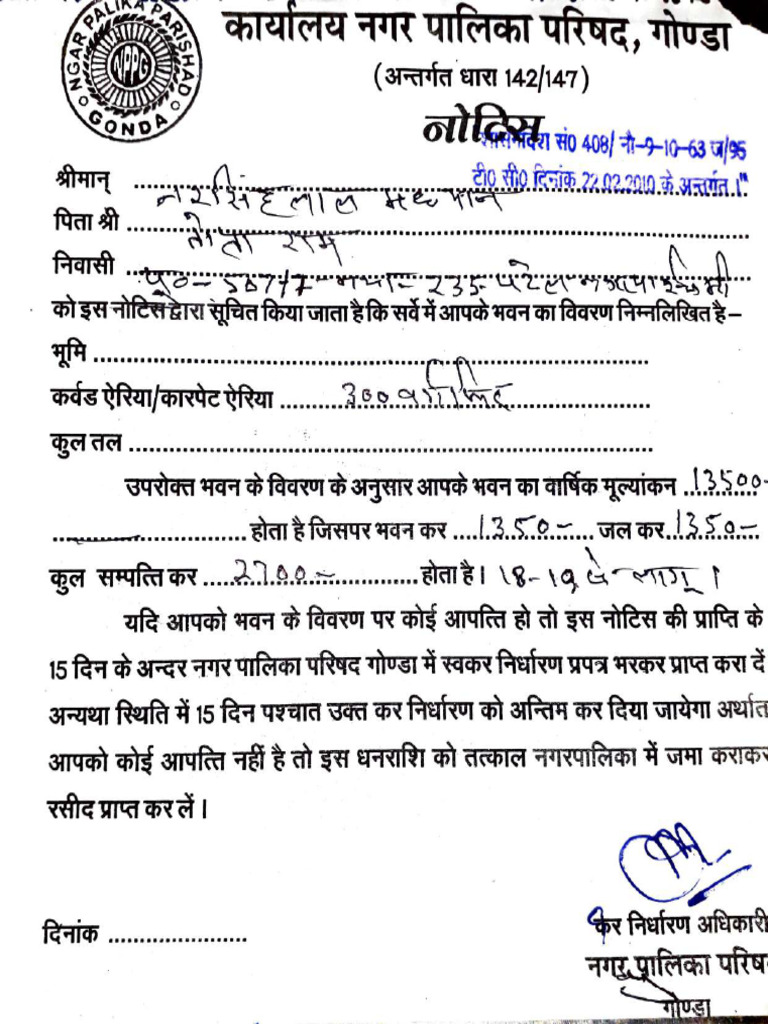 NGAR PALIKA PARISHAD
NPPG
GONDA
कार्यालय नगर पालिका परिषद, गोण्डा
(अन्तर्गत धारा 142/147)
नोटिस
शासनादेश सं0 408/ नौ-9-10-63 ज/95
टी0 सी0 दिनांक 22.02.2010 के अन्तर्गत।"
श्रीमान् नरसिंह लाल
पिता श्री तोता राम
निवासी पू०- 507/7 235- पटेल नगर
को इस नोटिस द्वारा सूचित किया जाता है कि सर्वे में आपके भवन का विवरण निम्नलिखित है –
भूमि
कर्वड ऐरिया/कारपेट ऐरिया 300 वर्ग फिट
कुल तल
उपरोक्त भवन के विवरण के अनुसार आपके भवन का वार्षिक मूल्यांकन 13500-
होता है जिसपर भवन कर 1350- जल कर 1350-
कुल सम्पत्ति कर 2700- होता है। 18-19 से लागू।
यदि आपको भवन के विवरण पर कोई आपत्ति हो तो इस नोटिस की प्राप्ति के
15 दिन के अन्दर नगर पालिका परिषद गोण्डा में स्वकर निर्धारण प्रपत्र भरकर प्राप्त करा दें
अन्यथा स्थिति में 15 दिन पश्चात उक्त कर निर्धारण को अन्तिम कर दिया जायेगा अर्थात
आपको कोई आपत्ति नहीं है तो इस धनराशि को तत्काल नगरपालिका में जमा कराकर
रसीद प्राप्त कर लें।
दिनांक
कर निर्धारण अधिकारी
नगर पालिका परिष
गोण्डा